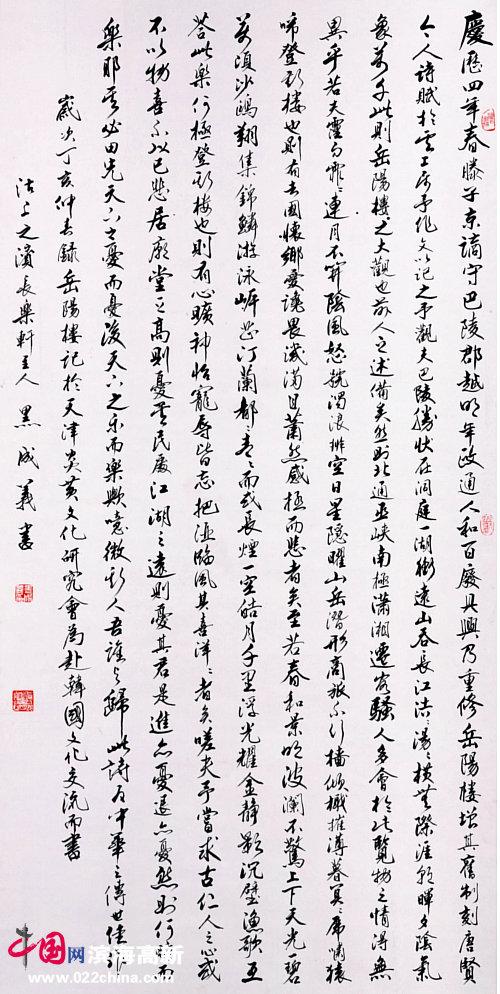 慶歷四年春滕子京謫守巴陵郡越明年政通人和百廢具興乃重修岳陽樓增其舊制刻唐賢
今人詩賦於其上屬予作文以記之予觀夫巴陵勝狀在洞庭一湖銜遠山吞長江浩〻湯〻橫無際涯朝暉夕陰氣
象萬千此則岳陽樓之大觀也前人之述備矣然則北通巫峽南極瀟湘遷客騷人多會於此覽物之情得無
異乎若夫霪雨霏〻連月不開陰風怒號濁浪排空日星隱曜山岳潛形商旅不行檣傾楫摧薄暮冥〻虎嘯猿
啼登斯樓也則有去國懷鄉憂讒畏譏滿目蕭然感極而悲者矣至若春和景明波瀾不驚上下天光一碧
萬頃沙鷗翔集錦鱗游泳岸芷汀蘭郁〻青〻而或長煙一空皓月千里浮光耀金靜影沉璧漁歌互
答此樂何極登斯樓也則有心曠神怡寵辱皆忘把酒臨風其喜洋〻者矣嗟夫予嘗求古仁人之心或
不以物喜不以己悲居廟堂之高則憂其民處江湖之遠則憂其君是進亦憂退亦憂然則何而
樂耶其必曰先天下之憂而憂後天下之乐而樂歟噫微斯人吾誰與歸此詩乃中華之傳世佳作
歲次丁亥仲春錄岳陽樓記於天津炎黃文化研究會為赴韓國文化交流而書
沽上之濱長樂軒主人 黑成義書
中国网 滨海高新
www.022china.com